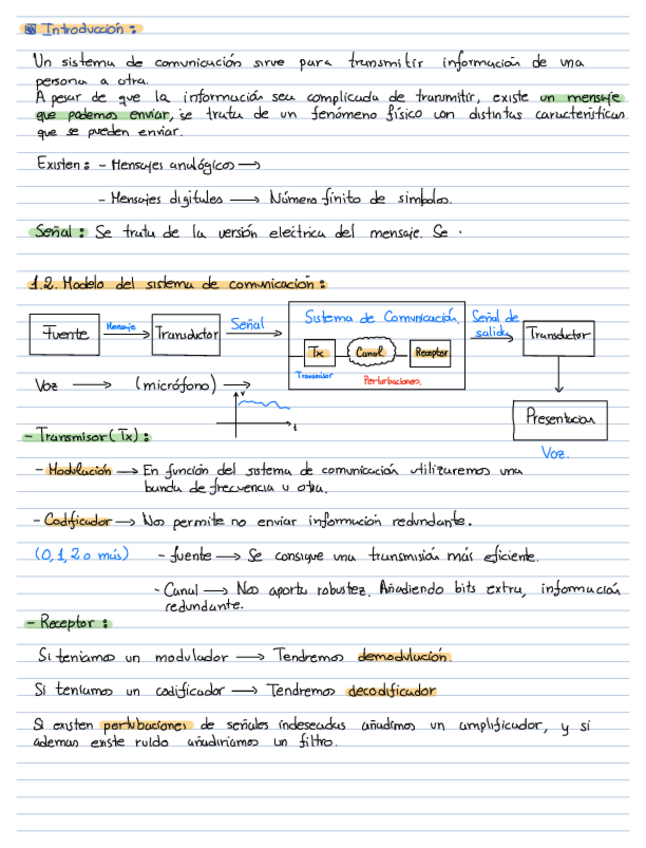 Introducción:
Un sistema de comunicación sirve para transmitir información de una
persona a otra.
A pesar de que la información sea complicada de transmitir, existe un mensaje
que podemos enviar, se trata de un fenómeno físico con distintas características
que se pueden enviar.
Existen: - Mensajes analógicos →
- Mensajes digitales → Número finito de simbolos.
Señal: Se trata de la versión electrica del mensaje. Se
1.2. Modelo del sistema de comunicación:
Fuente Mensaje Transductor Señal Sistema de Comunicación. Señal de salida Transductor
Tx Canal Receptor
Transmisor Perturbaciones.
Voz → (micrófono) →
v
t
Presentacion
Voz.
- Transmisor (Tx):
- Modulación → En función del sistema de comunicación utilizaremos una
banda de frecuencia u otra.
- Codificador → Nos permite no enviar información redundante.
(0, 1, 2 o más) - fuente → Se consigue una transmisión más eficiente.
- Canal → Nos aporta robustez. Añadiendo bits extra, información
redundante.
- Receptor:
Si teniamos un modulador → Tendremos demodulación.
Si teniamos un codificador → Tendremos decodificador
Si existen pertubaciones de señales indeseadas añadimos un amplificador, y si
ademas existe ruido añadiriamos un filtro.